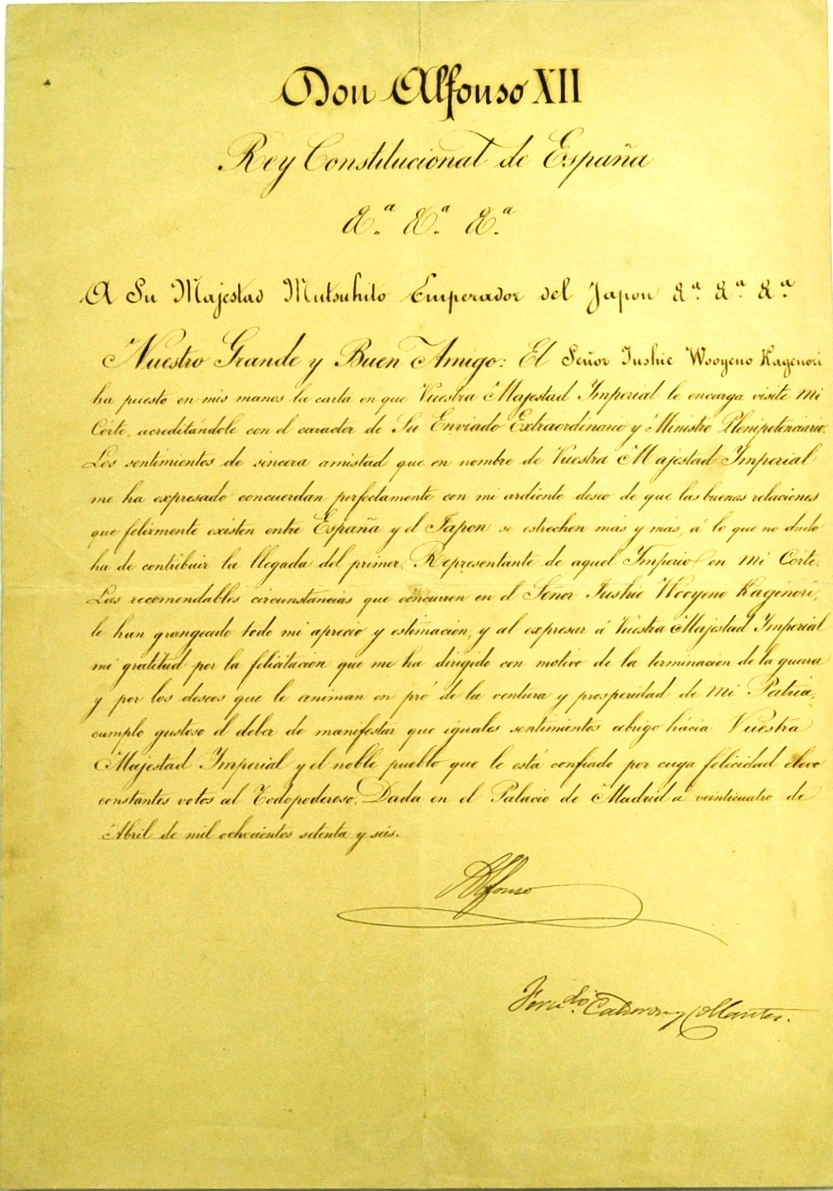 Don Alfonso XII
Rey Constitucional de España
&.ª &.ª &.ª
A Su Majestad Mutsuhito Emperador del Japon &.ª &.ª &.ª
Nuestro Grande y Buen Amigo: El Señor Jushie Wooyeno Kagenori
ha puesto en mis manos la carta en que Vuestra Majestad Imperial le encarga visite mi
Córte, acreditandole con el caracter de Su Enviado Extraordinario y Ministro Plenipotenciario.
Los sentimientos de sincera amistad que en nombre de Vuestra Majestad Imperial
me ha expresado concuerdan perfectamente con mi ardiente deseo de que las buenas relaciones
que felizmente existen entre España y el Japon se estrechen más y más, á lo que no dudo
ha de contribuir la llegada del primer Representante de aquel Imperio en mi Corte.
Las recomendables circunstancias que concurren en el Señor Jushie Wooyeno Kagenori,
le han grangeado todo mi aprecio y estimacion, y al expresar á Vuestra Majestad Imperial
mi gratitud por la felicitacion que me ha dirigido con motivo de la terminacion de la guerra
y por los deseos que le animan en pró de la ventura y prosperidad de mi Patria,
cumplo gustoso el deber de manifestar que iguales sentimientos abrigo hácia Vuestra
Majestad Imperial y el noble pueblo que le está confiado por cuya felicidad elevo
constantes votos al Todopoderoso. Dada en el Palacio de Madrid á veinticuatro de
Abril de mil ochocientos setenta y seis.
Alfonso
Fern.do Calderon y Collantes.